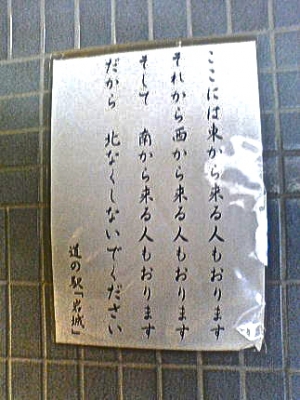 ここには東から来る人もおります
それから西から来る人もおります
そして 南から来る人もおります
だから 北なくしないでください
道の駅「岩城」